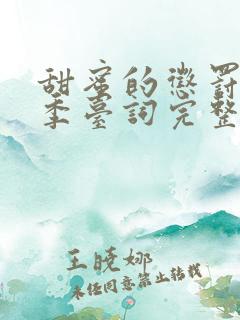 甜蜜的懲罰
季臺詞完整
王曉娜
未经同意禁止转载